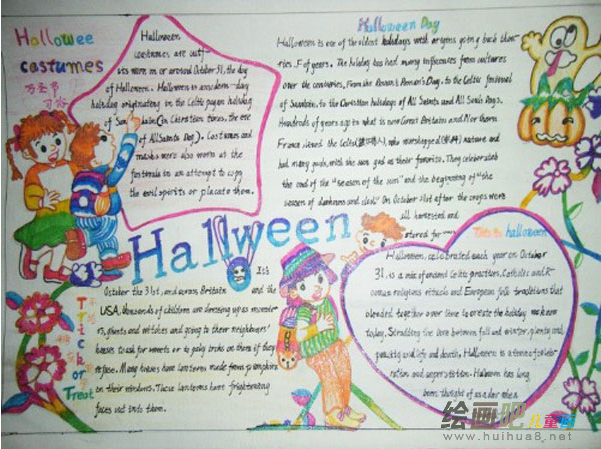 Hallowee
castumes
万圣节
习俗
Halloween
costumes are out-
its worn on or around October 31, the day
of Halloween. Halloween is a modern-day
holiday originating in the Celtic pagan holiday
of Sam hain (in Christian times, the eve
of All Saints Day). Costumes and
masks were also worn at the
festivals in an attempt to copy
the evil spirits or placate them.
Halloween Day
Halloween is one of the oldest holidays with origins going back thous-
of years. The holiday has had many influences from cultures
over the centuries, From the Roman's Day, to the Celtic festival
of Samhain, to the Christian holidays of All Saints and All Souls Days.
Hundreds of years ago in what is now Great Britain and Northern
France, lived the Celts who worshipped nature and
had many gods, with the sun god as their favorite. They celebrated
the end of the "season of the sun" and the beginning of "the
season of darkness and cold." On October 31st after the crops were
all harvested and
stored for
Hallween
It's
October the 31st, and across Britain and the
USA, thousands of children are dressing up as monste-
rs, ghosts and witches and going to their neighbours'
houses to ask for sweets or to play tricks on them if they
refuse. Many houses have lanterns made from pumpkins
in their windows. These lanterns have frightening
faces cut into them.
Trick
or
Treat
This is halloween
Halloween, celebrated each year on October
31, is a mix of ancient Celtic practices, Catholic and R-
oman religious rituals and European folk traditions that
blended together over time to create the holiday we know
today. Straddling the line between fall and winter, plenty and
paucity and life and death, Halloween is a time of celeb-
ration and superstition. Halloween has long
been thought of as a day when
绘画吧儿童网
www.huihua8.net